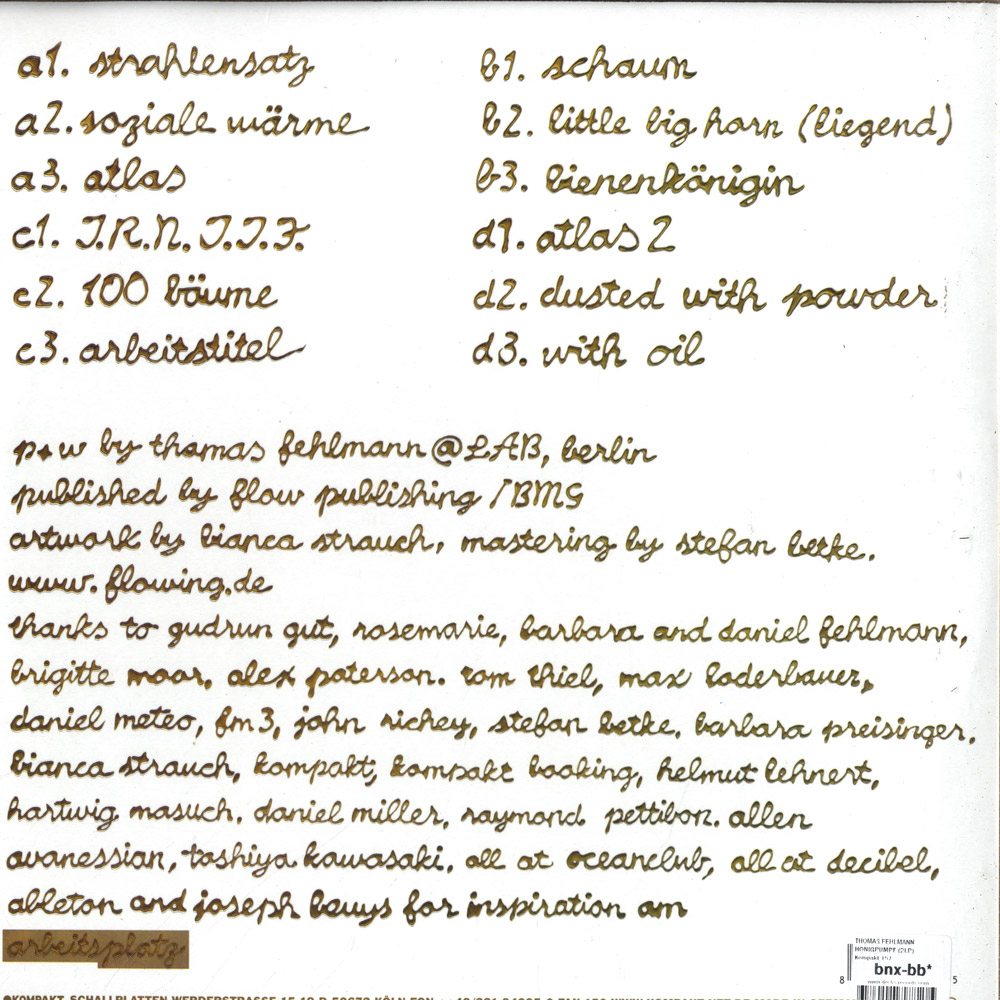 a1. strahlensatz
a2. soziale wärme
a3. atlas
c1. T.R.N.T.T.F.
c2. 100 bäume
c3. arbeitstitel
b1. schaum
b2. little big horn (liegend)
b3. bienenkönigin
d1. atlas 2
d2. dusted with powder
d3. with oil
p+w by thomas fehlmann @ LAB, berlin
published by flow publishing / BMG
artwork by bianca strauch, mastering by stefan betke.
www.flowing.de
thanks to gudrun gut, rosemarie, barbara and daniel fehlmann,
brigitte moor, alex paterson. tom thiel, max loderbauer,
daniel meteo, fm3, john richey, stefan betke. barbara preisinger.
bianca strauch, kompakt, kompakt booking, helmut lehnert,
hartwig masuch. daniel miller, raymond pettibon. allen
avanessian, toshiya kawasaki. all at oceanclub, all at decibel,
ableton and joseph beuys for inspiration am
arbeitsplatz
THOMAS FEHLMANN
HONIGPUMPE (2LP)
Kompakt 157
bnx-bb*
8 5
KOMPAKT SCHALLPLATTEN WERDERSTRASSE 15-19 D-50672 KÖLN